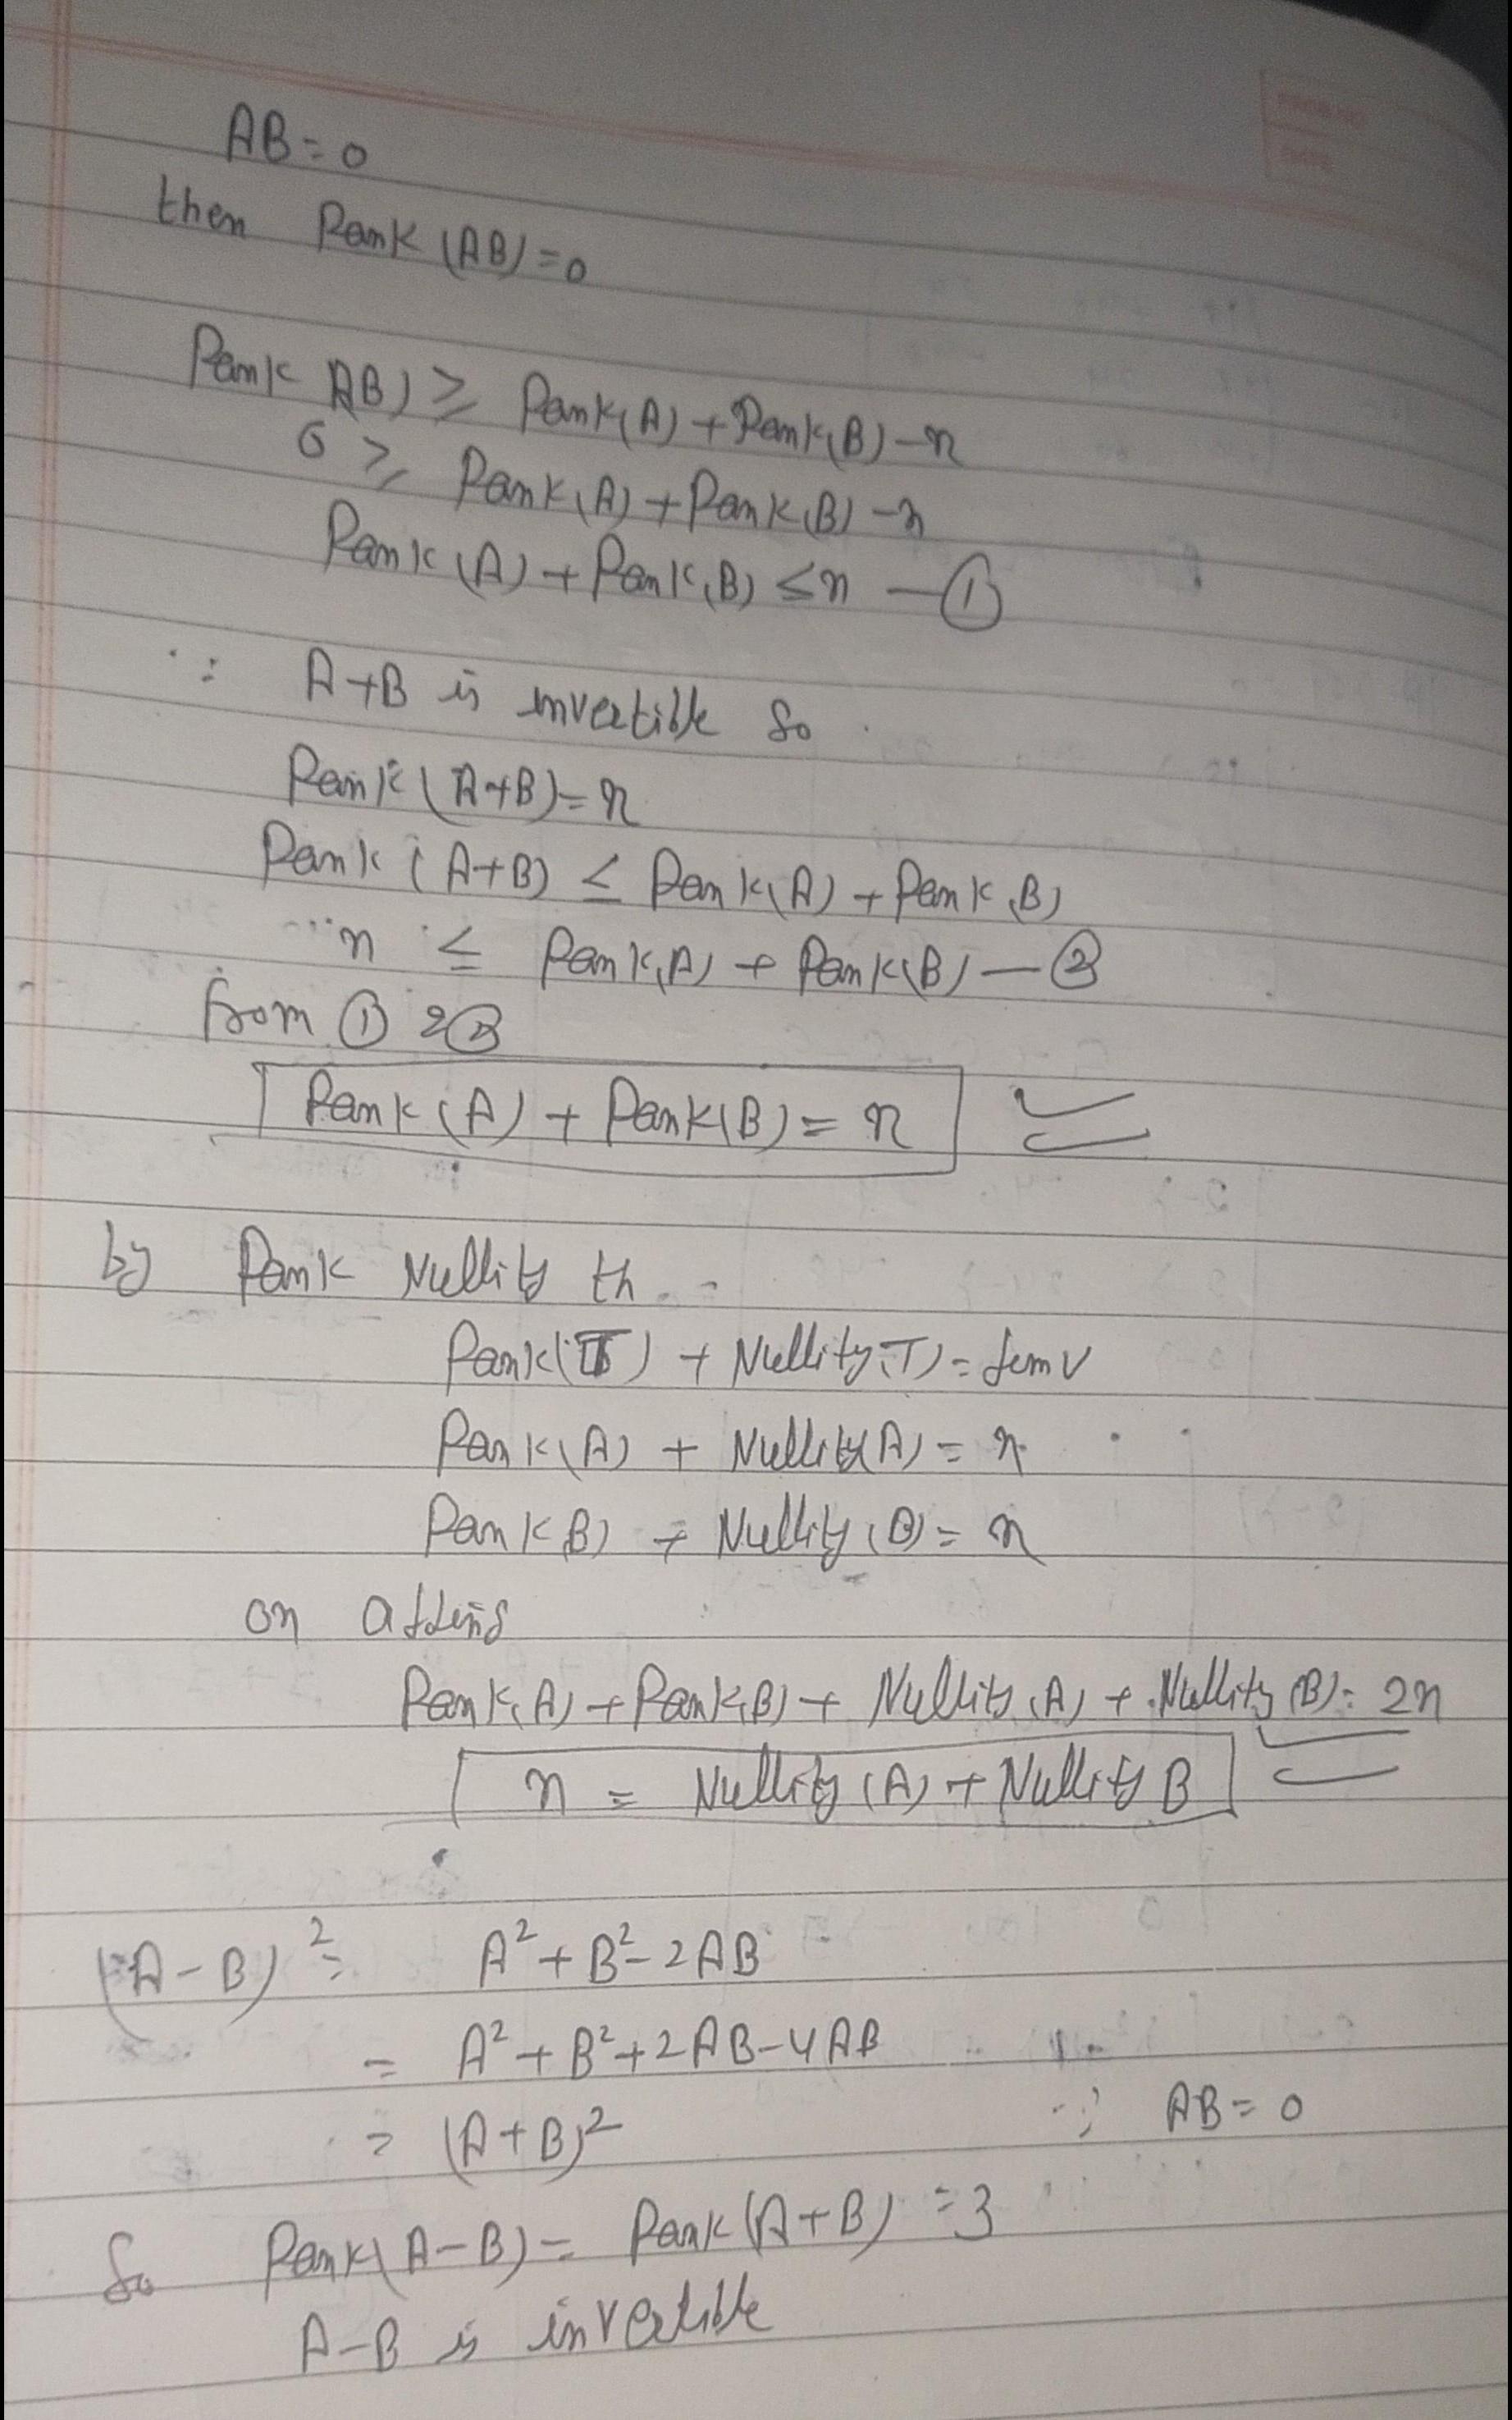 AB=0
then Rank (AB)=0
Rank AB) ≥ Rank(A)+Rank(B)-n
0 ≥ Rank(A)+Rank(B)-n
Rank (A)+Rank(B) ≤n —①
∵ A+B is invertible So
Rank (A+B)=n
Rank (A+B) ≤ Rank(A)+Rank(B)
n ≤ Rank(A) + Rank(B) —②
from ① & ②
Rank (A) + Rank(B) = n
by Rank Nullity th.
Rank(T) + Nullity(T) = dim V
Rank(A) + Nullity(A) = n
Rank(B) + Nullity(B) = n
on adding
Rank(A)+Rank(B)+ Nullity(A) + Nullity(B) = 2n
n = Nullity (A) + Nullity B
(A-B)² = A²+B²-2AB
= A²+B²+2AB-4AB
= (A+B)² ∵ AB=0
So Rank(A-B) = Rank(A+B) =3
A-B is invertible